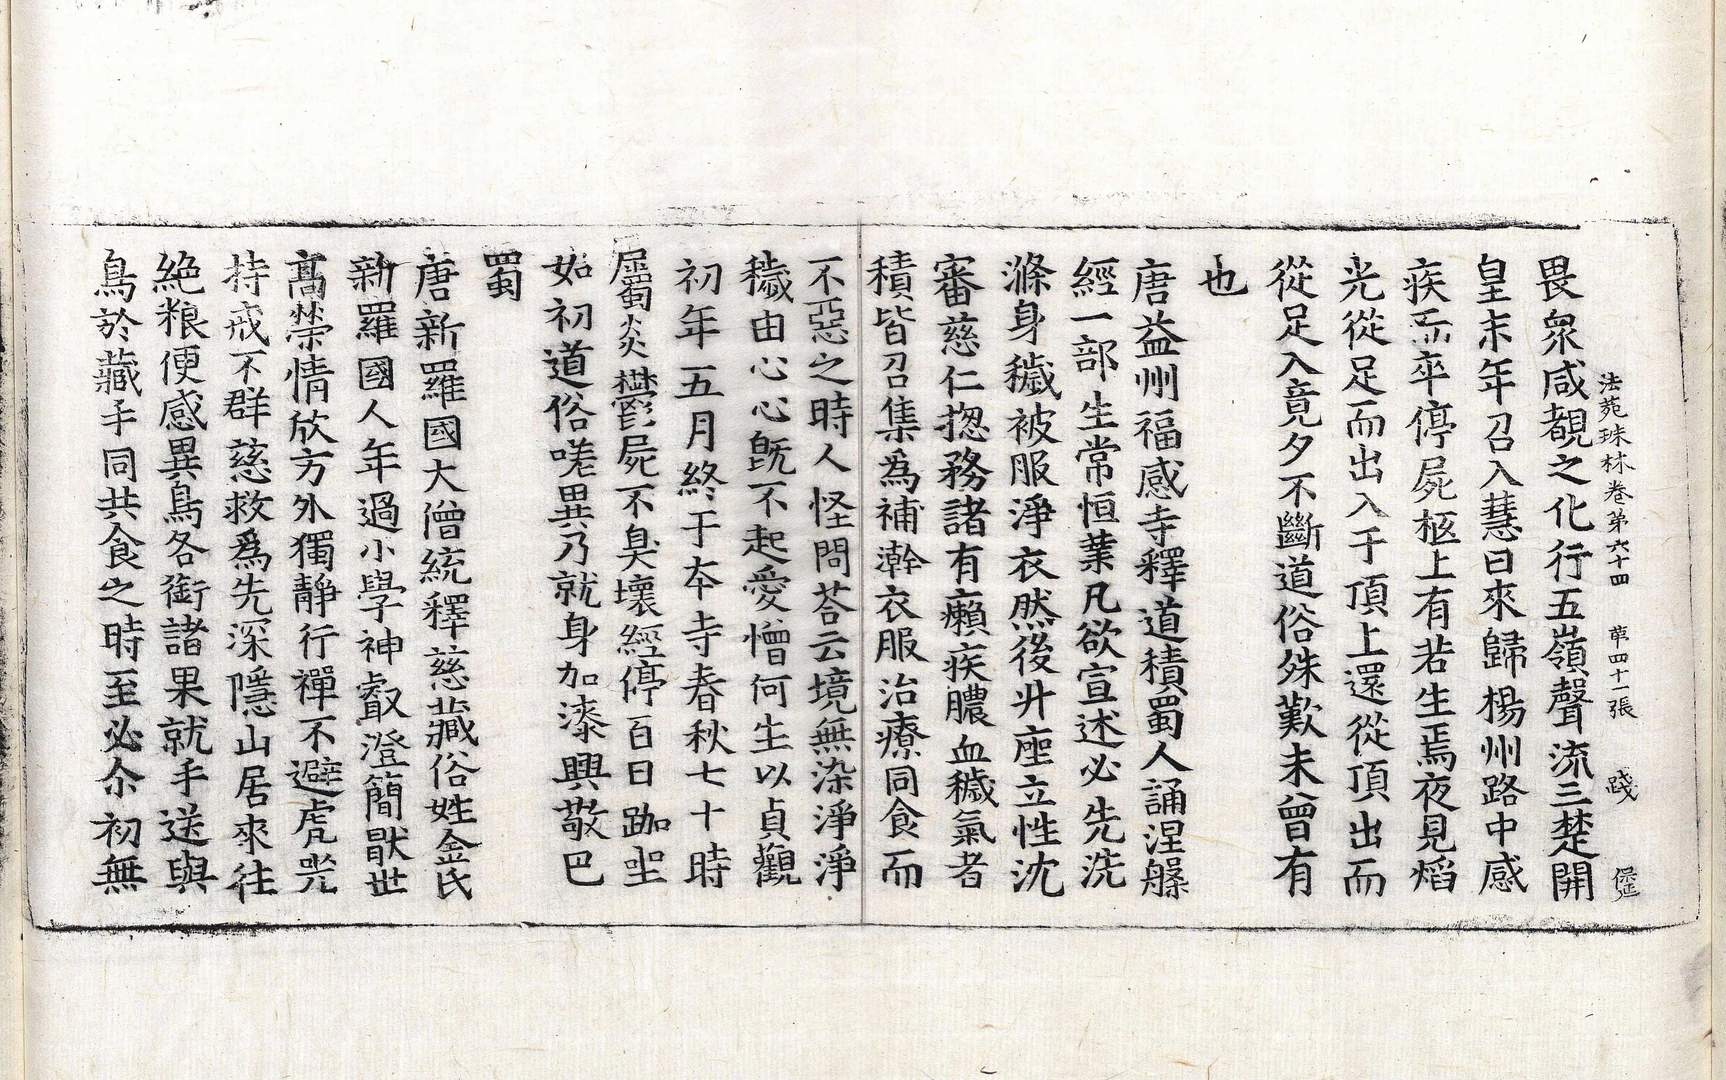 法苑珠林卷第六十四 第四十一張 踐
畏衆咸覩之化行五嶺聲流三楚開
皇末年召入慧日來歸楊州路中感
疾而卒停屍柩上有若生焉夜見焰
光從足而出入于頂上還從頂出而
從足入竟夕不斷道俗殊歎未曾有
也
唐益州福感寺釋道積蜀人誦涅槃
經一部生常恒業凡欲宣述必先洗
滌身穢被服淨衣然後升座立性沈
審慈仁揔務諸有癩疾膿血穢氣者
積皆召集爲補澣衣服治療同食而
不惡之時人怪問荅云境無染淨淨
穢由心心旣不起愛憎何生以貞觀
初年五月終于本寺春秋七十時
屬炎鬱屍不臭壞經停百日跏坐
如初道俗嗟異乃就身加漆興敬巴
蜀
唐新羅國大僧統釋慈藏俗姓金氏
新羅國人年過小學神叡澄簡猒世
髙榮情放方外獨靜行禪不避虎兕
持戒不群慈救爲先深隱山居來往
絶粮便感異鳥各銜諸果就手送與
鳥於藏手同共食之時至必尒初無